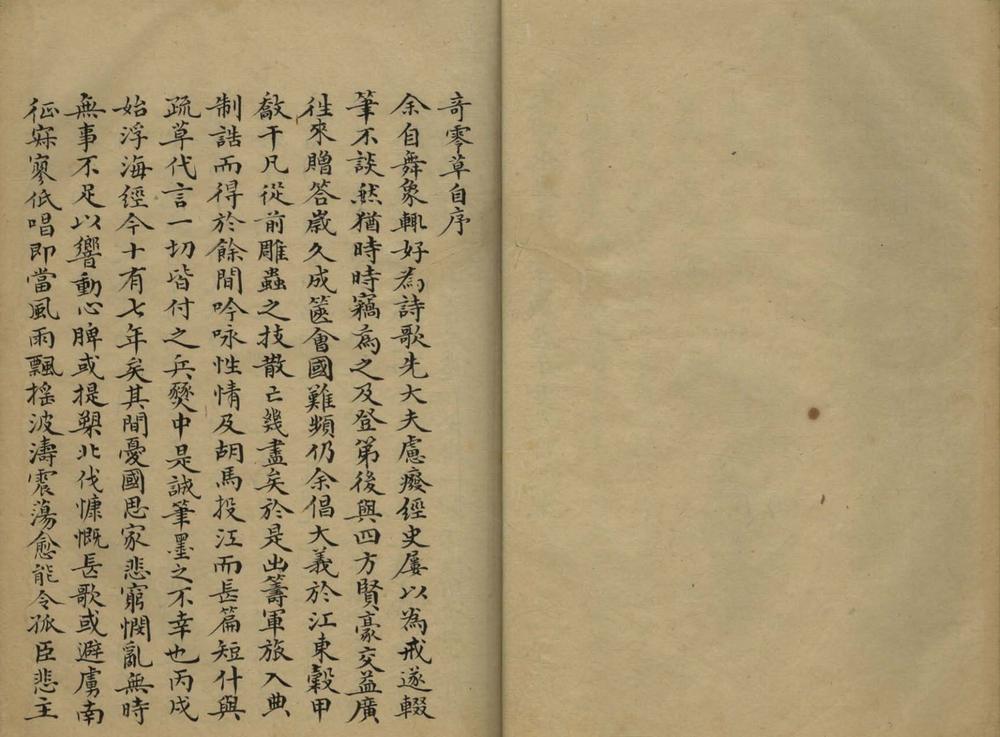 奇零草自序
余自舞象輒好為詩歌先大夫慮癈經史屢以為戒遂輟
筆不談然猶時時竊為之及登第後與四方賢豪交益廣
徃來贈答歲久成篋會國難頻仍余倡大義於江東糓甲
敽干凡從前雕蟲之技散亡幾盡矣於是出籌軍旅入典
制誥而得於餘間吟咏性情及胡馬投江而長篇短什與
疏草代言一切皆付之兵燹中是誠筆墨之不幸也丙戌
始浮海經今十有七年矣其間憂國思家悲窮憫亂無時
無事不足以響動心脾或提槊北伐慷慨長歌或避虜南
征寀寥低唱即當風雨飄摇波濤震蕩愈能令孤臣悲主